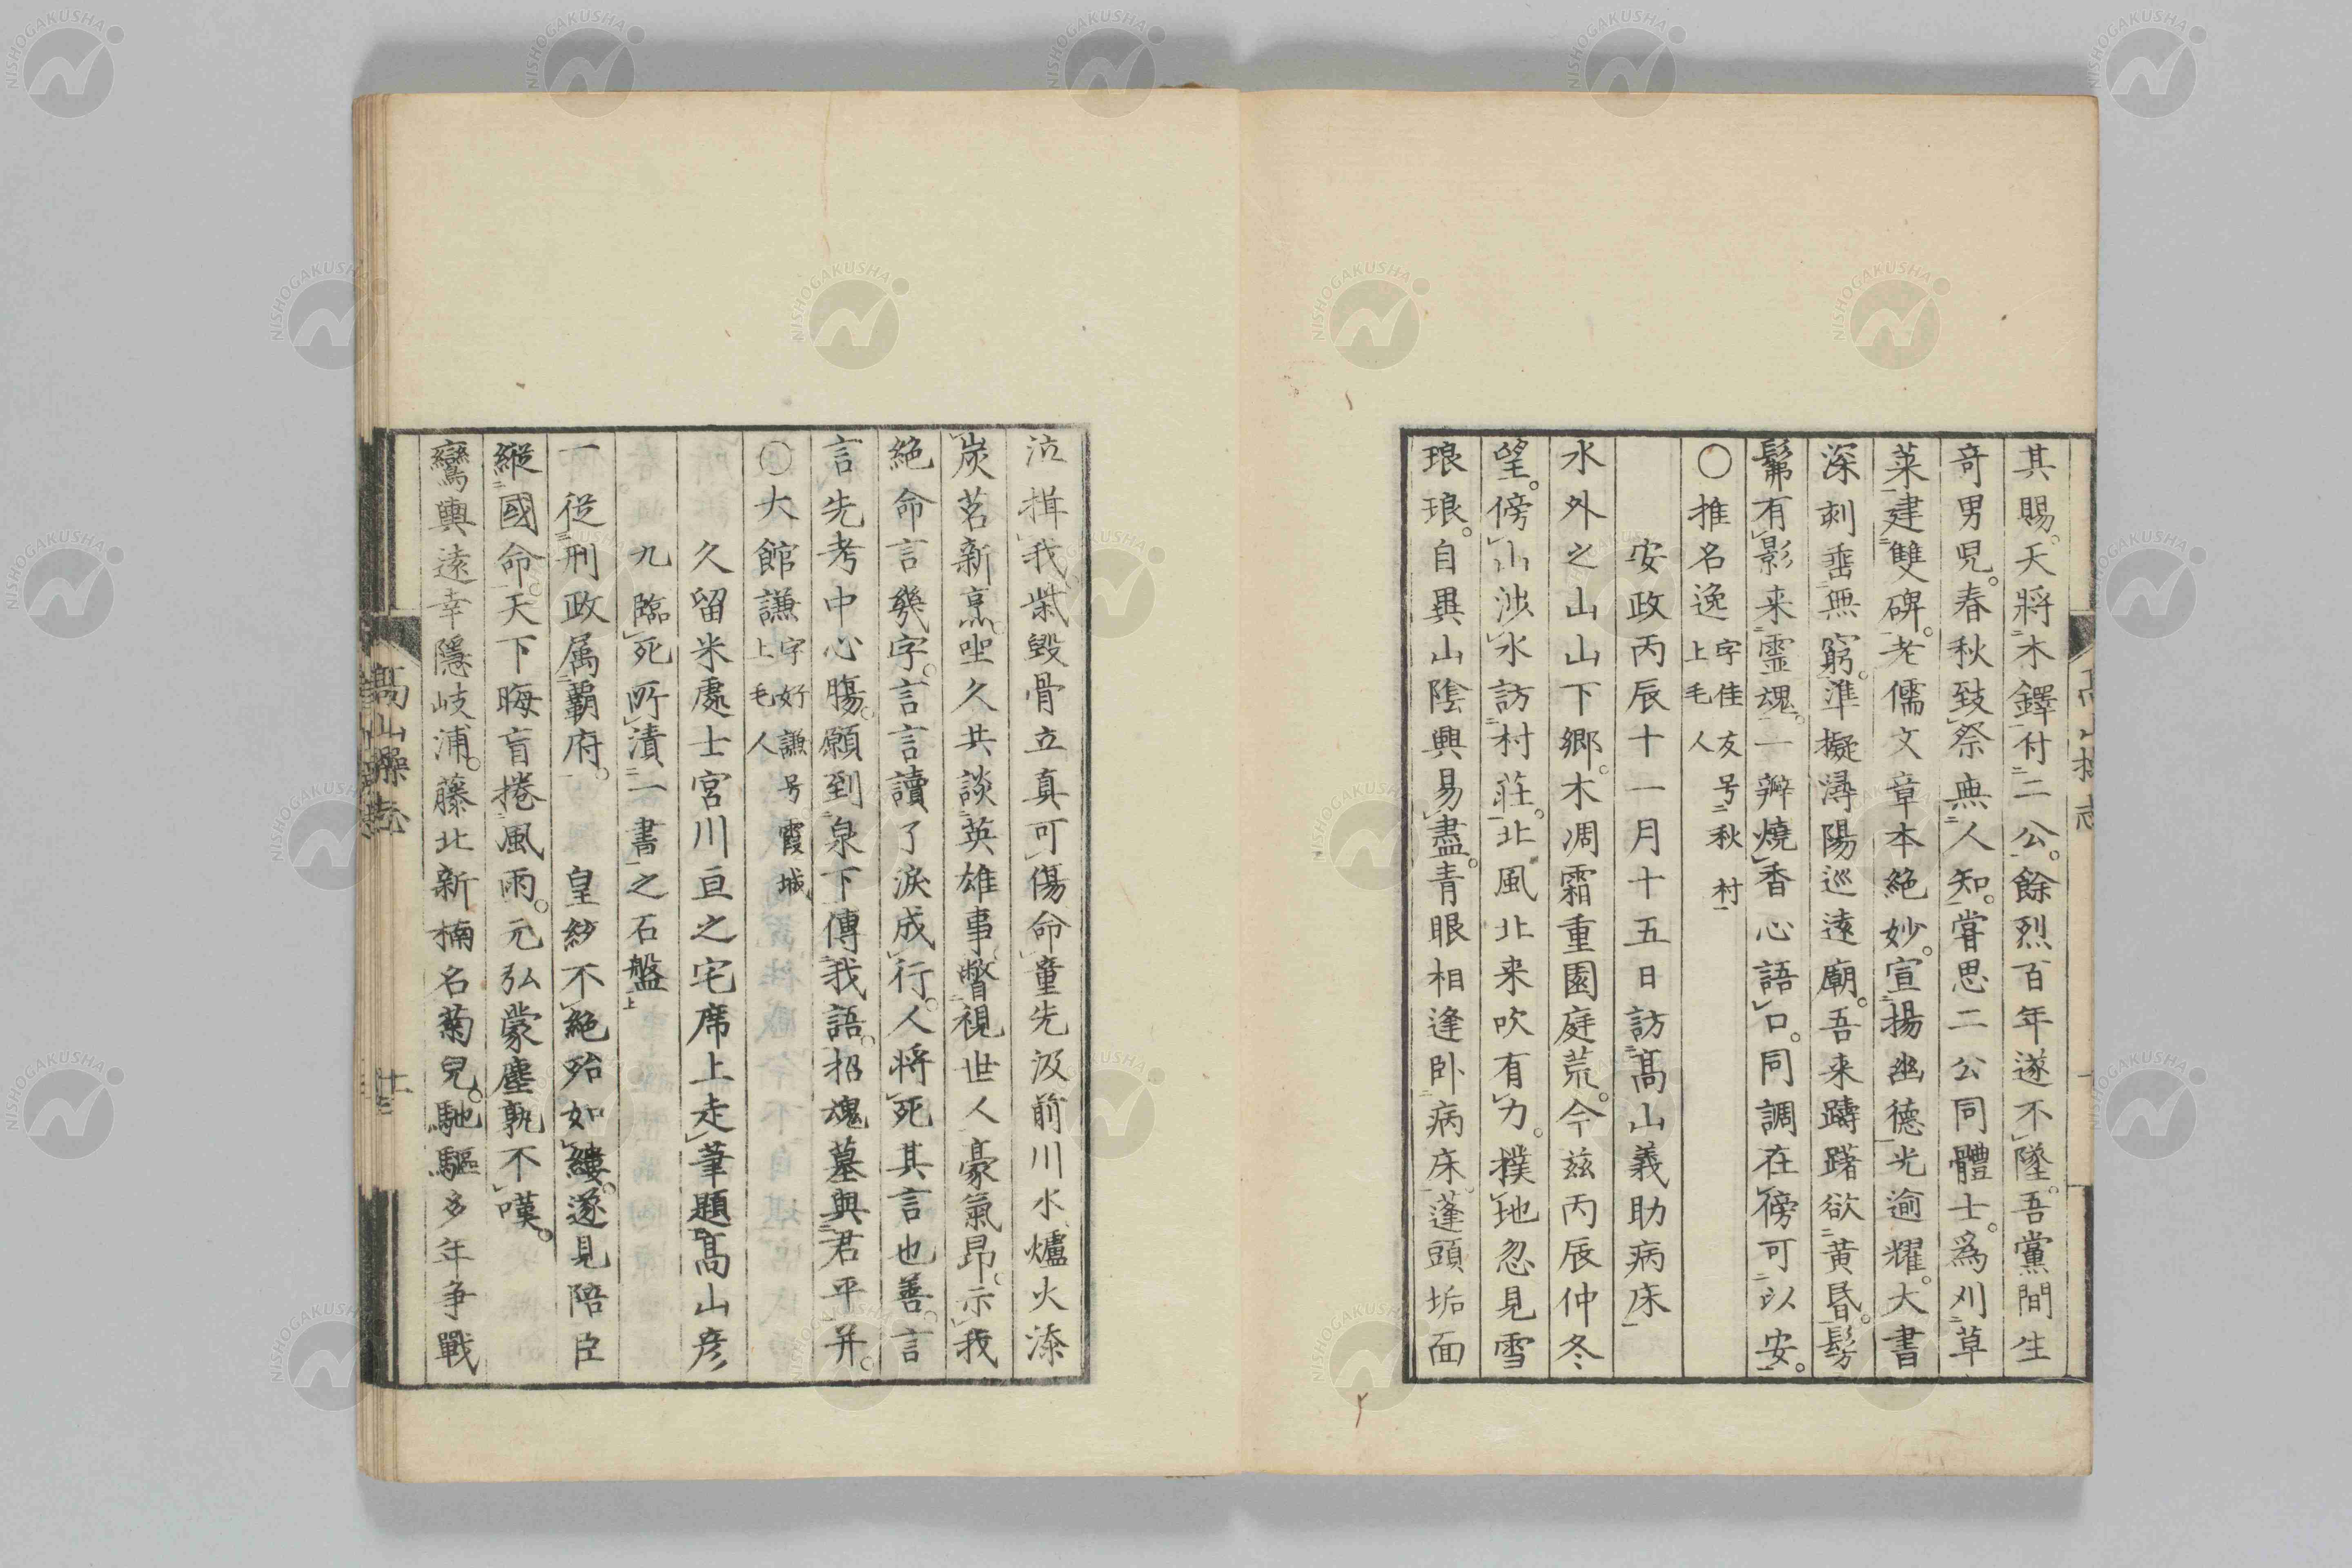 其賜。天將木鐸付二公。餘烈百年遂不墜。吾黨間生
奇男児。春秋致祭無人知。嘗思二公同體士。為刈草
菜建雙碑。老儒文章本絶妙。宣揚幽德光逾耀。大書
深刻垂無窮。準擬潯陽巡遠廟。吾来躊躇欲黄昏。髣
髴有影来霊魂。一瓣燒香心語口。同調在傍可以安。
〇推名逸 字佳友号秋村
上毛人
安政丙辰十一月十五日訪髙山義助病床
水外之山山下郷。木凋霜重園庭荒。今茲丙辰仲冬
望。傍山渉水訪村莊。北風北来吹有力。撲地忽見雪
琅琅。自異山陰興易盡。青眼相逢卧病床。蓬頭垢面
泣揖我。柴毀骨立真可傷。命童先汲前川水。爐火添
炭茗新烹。坐久共談英雄事。瞥視世人豪氣昂。示我
絶命言幾字。言言讀了淚成行。人將死其言也善。言
言先考中心腸。願到泉下傳我語。招魂墓與君平并。
〇大館謙 字好謙号霞城
上毛人
久留米處士宮川亘之宅席上走筆題髙山彦
九臨死所漬二書之石盤上
一從刑政属覇府。皇紗不絶殆如縷。遂見陪臣
縦國命。天下晦盲捲風雨。元弘蒙塵孰不嘆。
鸞輿遠幸隱岐浦。藤北新楠名菊兒。馳驅多年争戰
髙山操志
十三